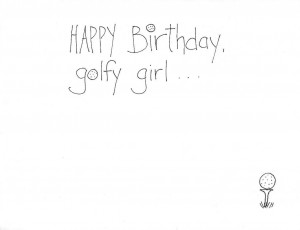 HAPPY Birthday,
golfy girl ...